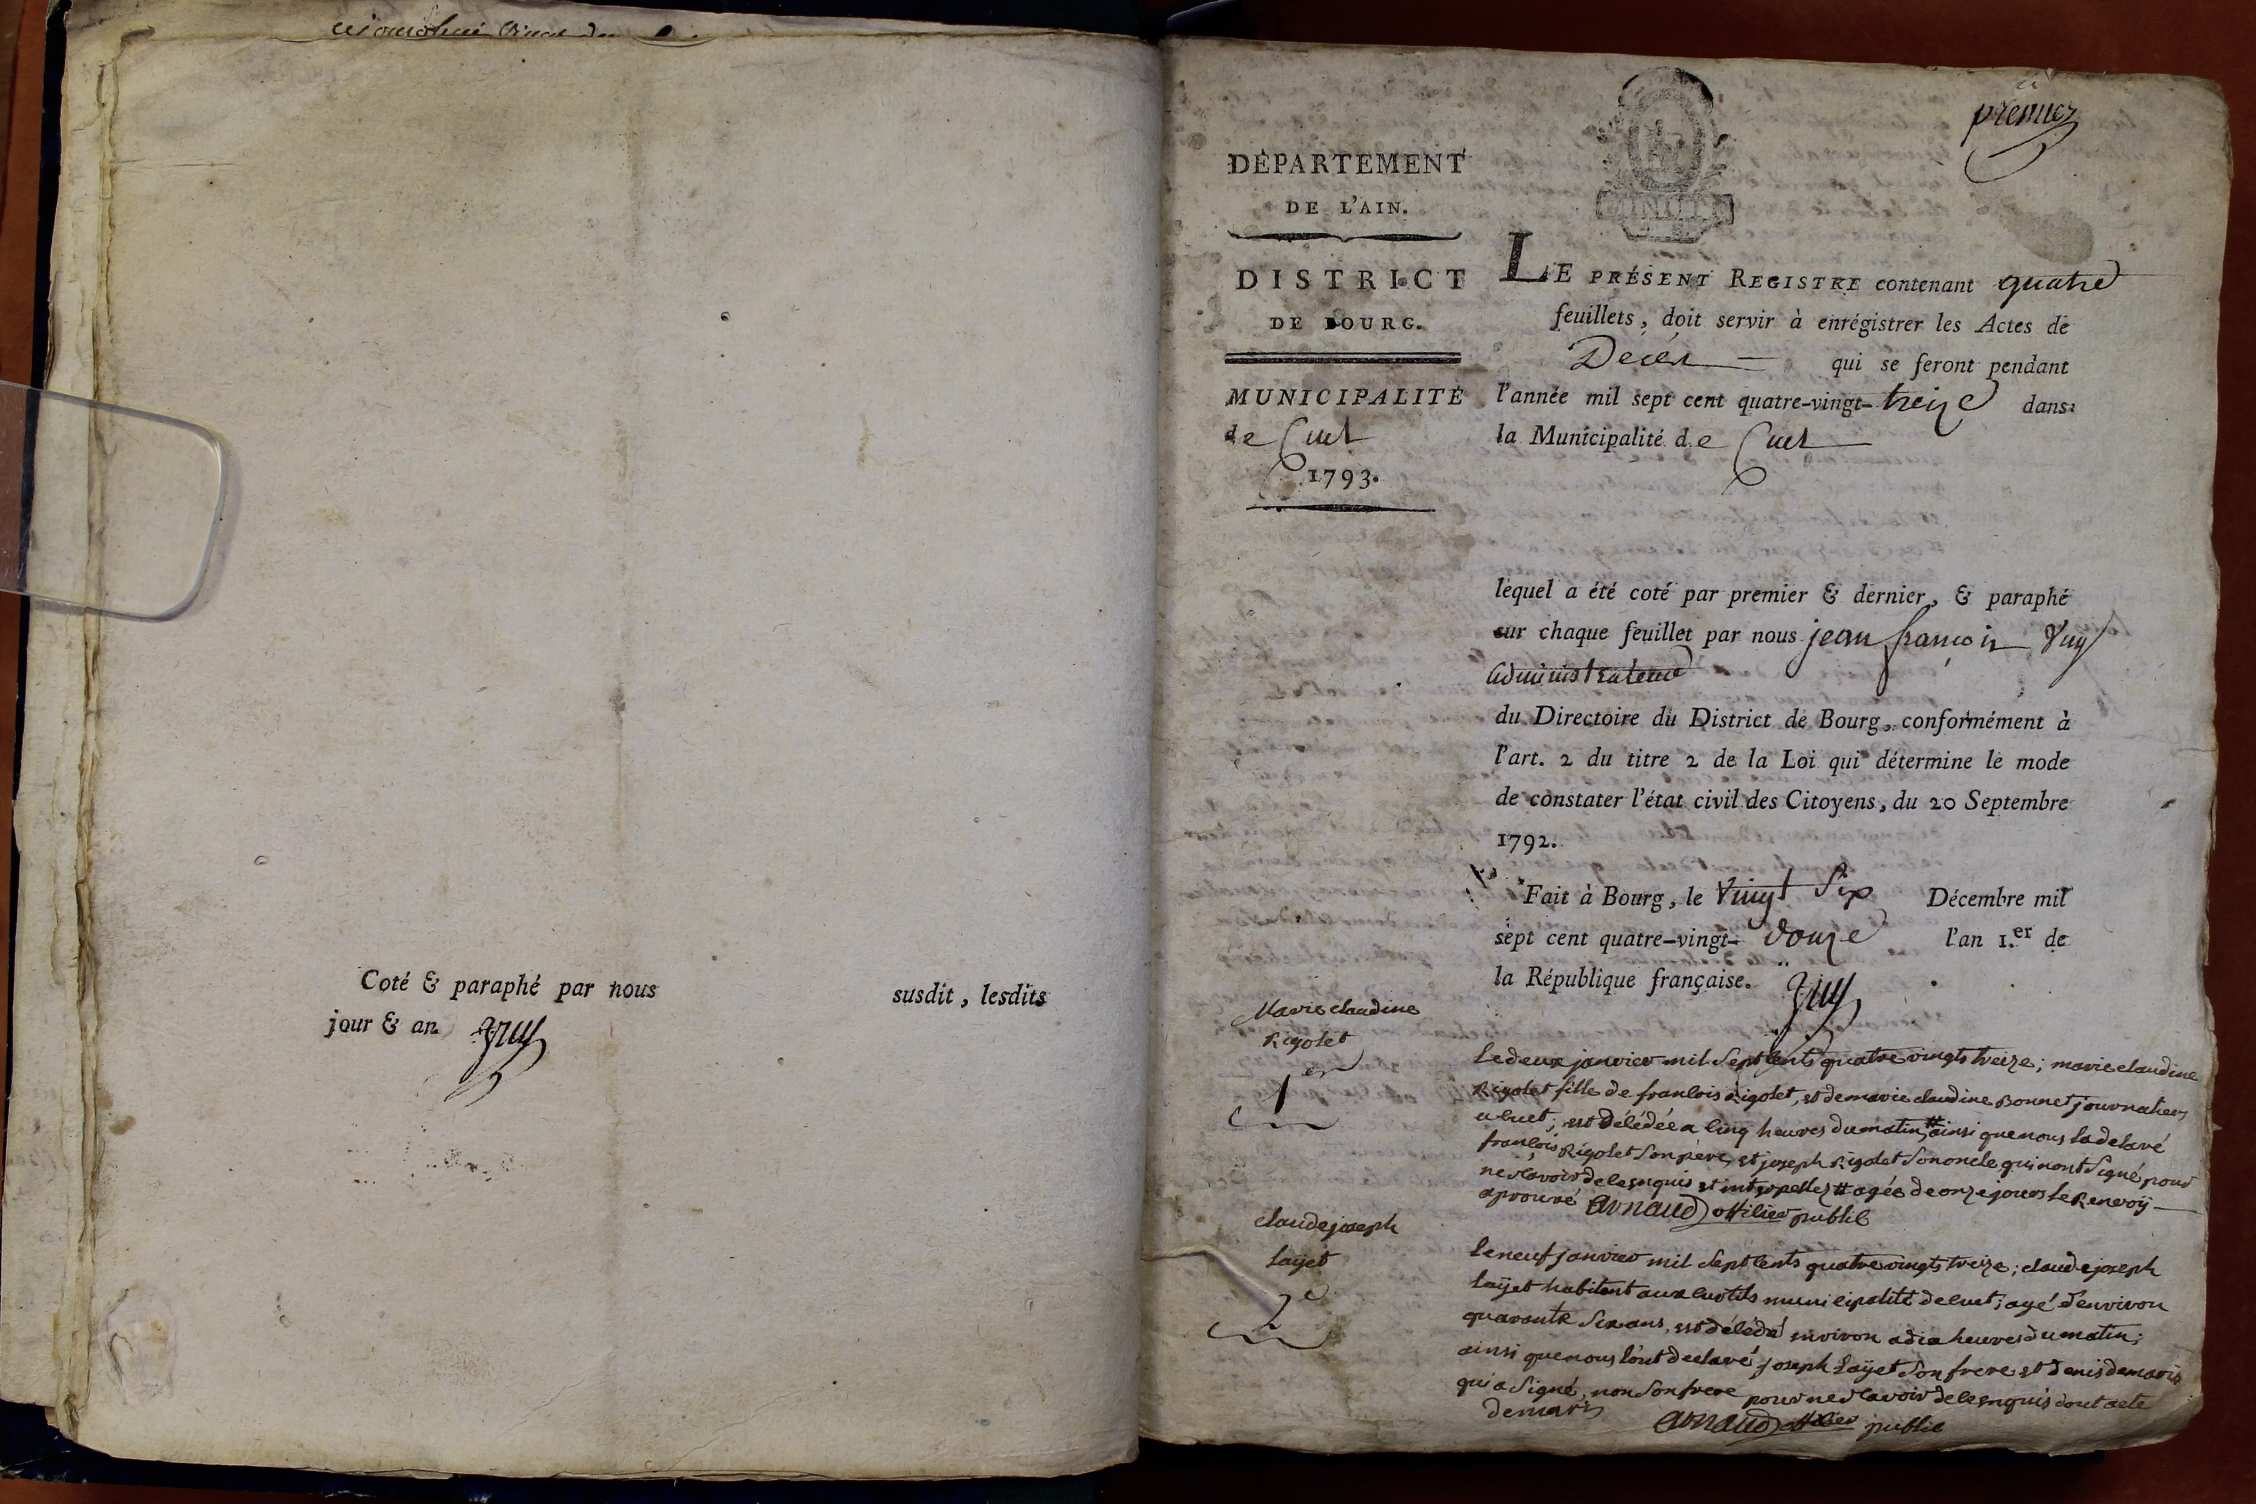 Coté & paraphé par nous susdit, lesdits
jour & an Vuy
premier
DÉPARTEMENT
DE L'AIN.
DISTRICT
DE BOURG.
MUNICIPALITÉ
de Cuet
1793.
LE PRÉSENT REGISTRE contenant quatre
feuillets, doit servir à enrégistrer les Actes de
Décès qui se feront pendant
l'année mil sept cent quatre-vingt-treize dans
la Municipalité de Cuet
lequel a été coté par premier & dernier, & paraphé
sur chaque feuillet par nous jean françois Vuy
administrateur
du Directoire du District de Bourg, conformément à
l'art. 2 du titre 2 de la Loi qui détermine le mode
de constater l'état civil des Citoyens, du 20 Septembre
1792.
Fait à Bourg, le vingt six Décembre mil
sept cent quatre-vingt-douze l'an 1.er de
la République française. Vuy
Marie claudine
Rigolet
1er
Le deux janvier mil sept cents quatre vingts treize; marie claudine
Rigolet fille de francois Rigolet, et de marie claudine Bonnet journalier
a cuet; est décédée a cinq heures du matin, # ainsi que nous la declaré
françois Rigolet son pere, et joseph Rigolet son oncle qui nont signé, pour
ne scavoir de ce enquis et interpellez # agée de onze jours le Renvoÿ
aprouvé arnaud officier public
claude joseph
Laÿet
2e
Le neuf janvier mil sept cents quatre vingts treize; claude joseph
Laÿet habitent aux curtils municipalité de cuet; agé d'environ
quarante six ans, est décédé environ a dix heures du matin;
ainsi que nous l'ont declaré joseph Laÿet son frere et denis demaris
qui a signé, non son frere pour ne scavoir de ce enquis dont acte
demaris arnaud officier public